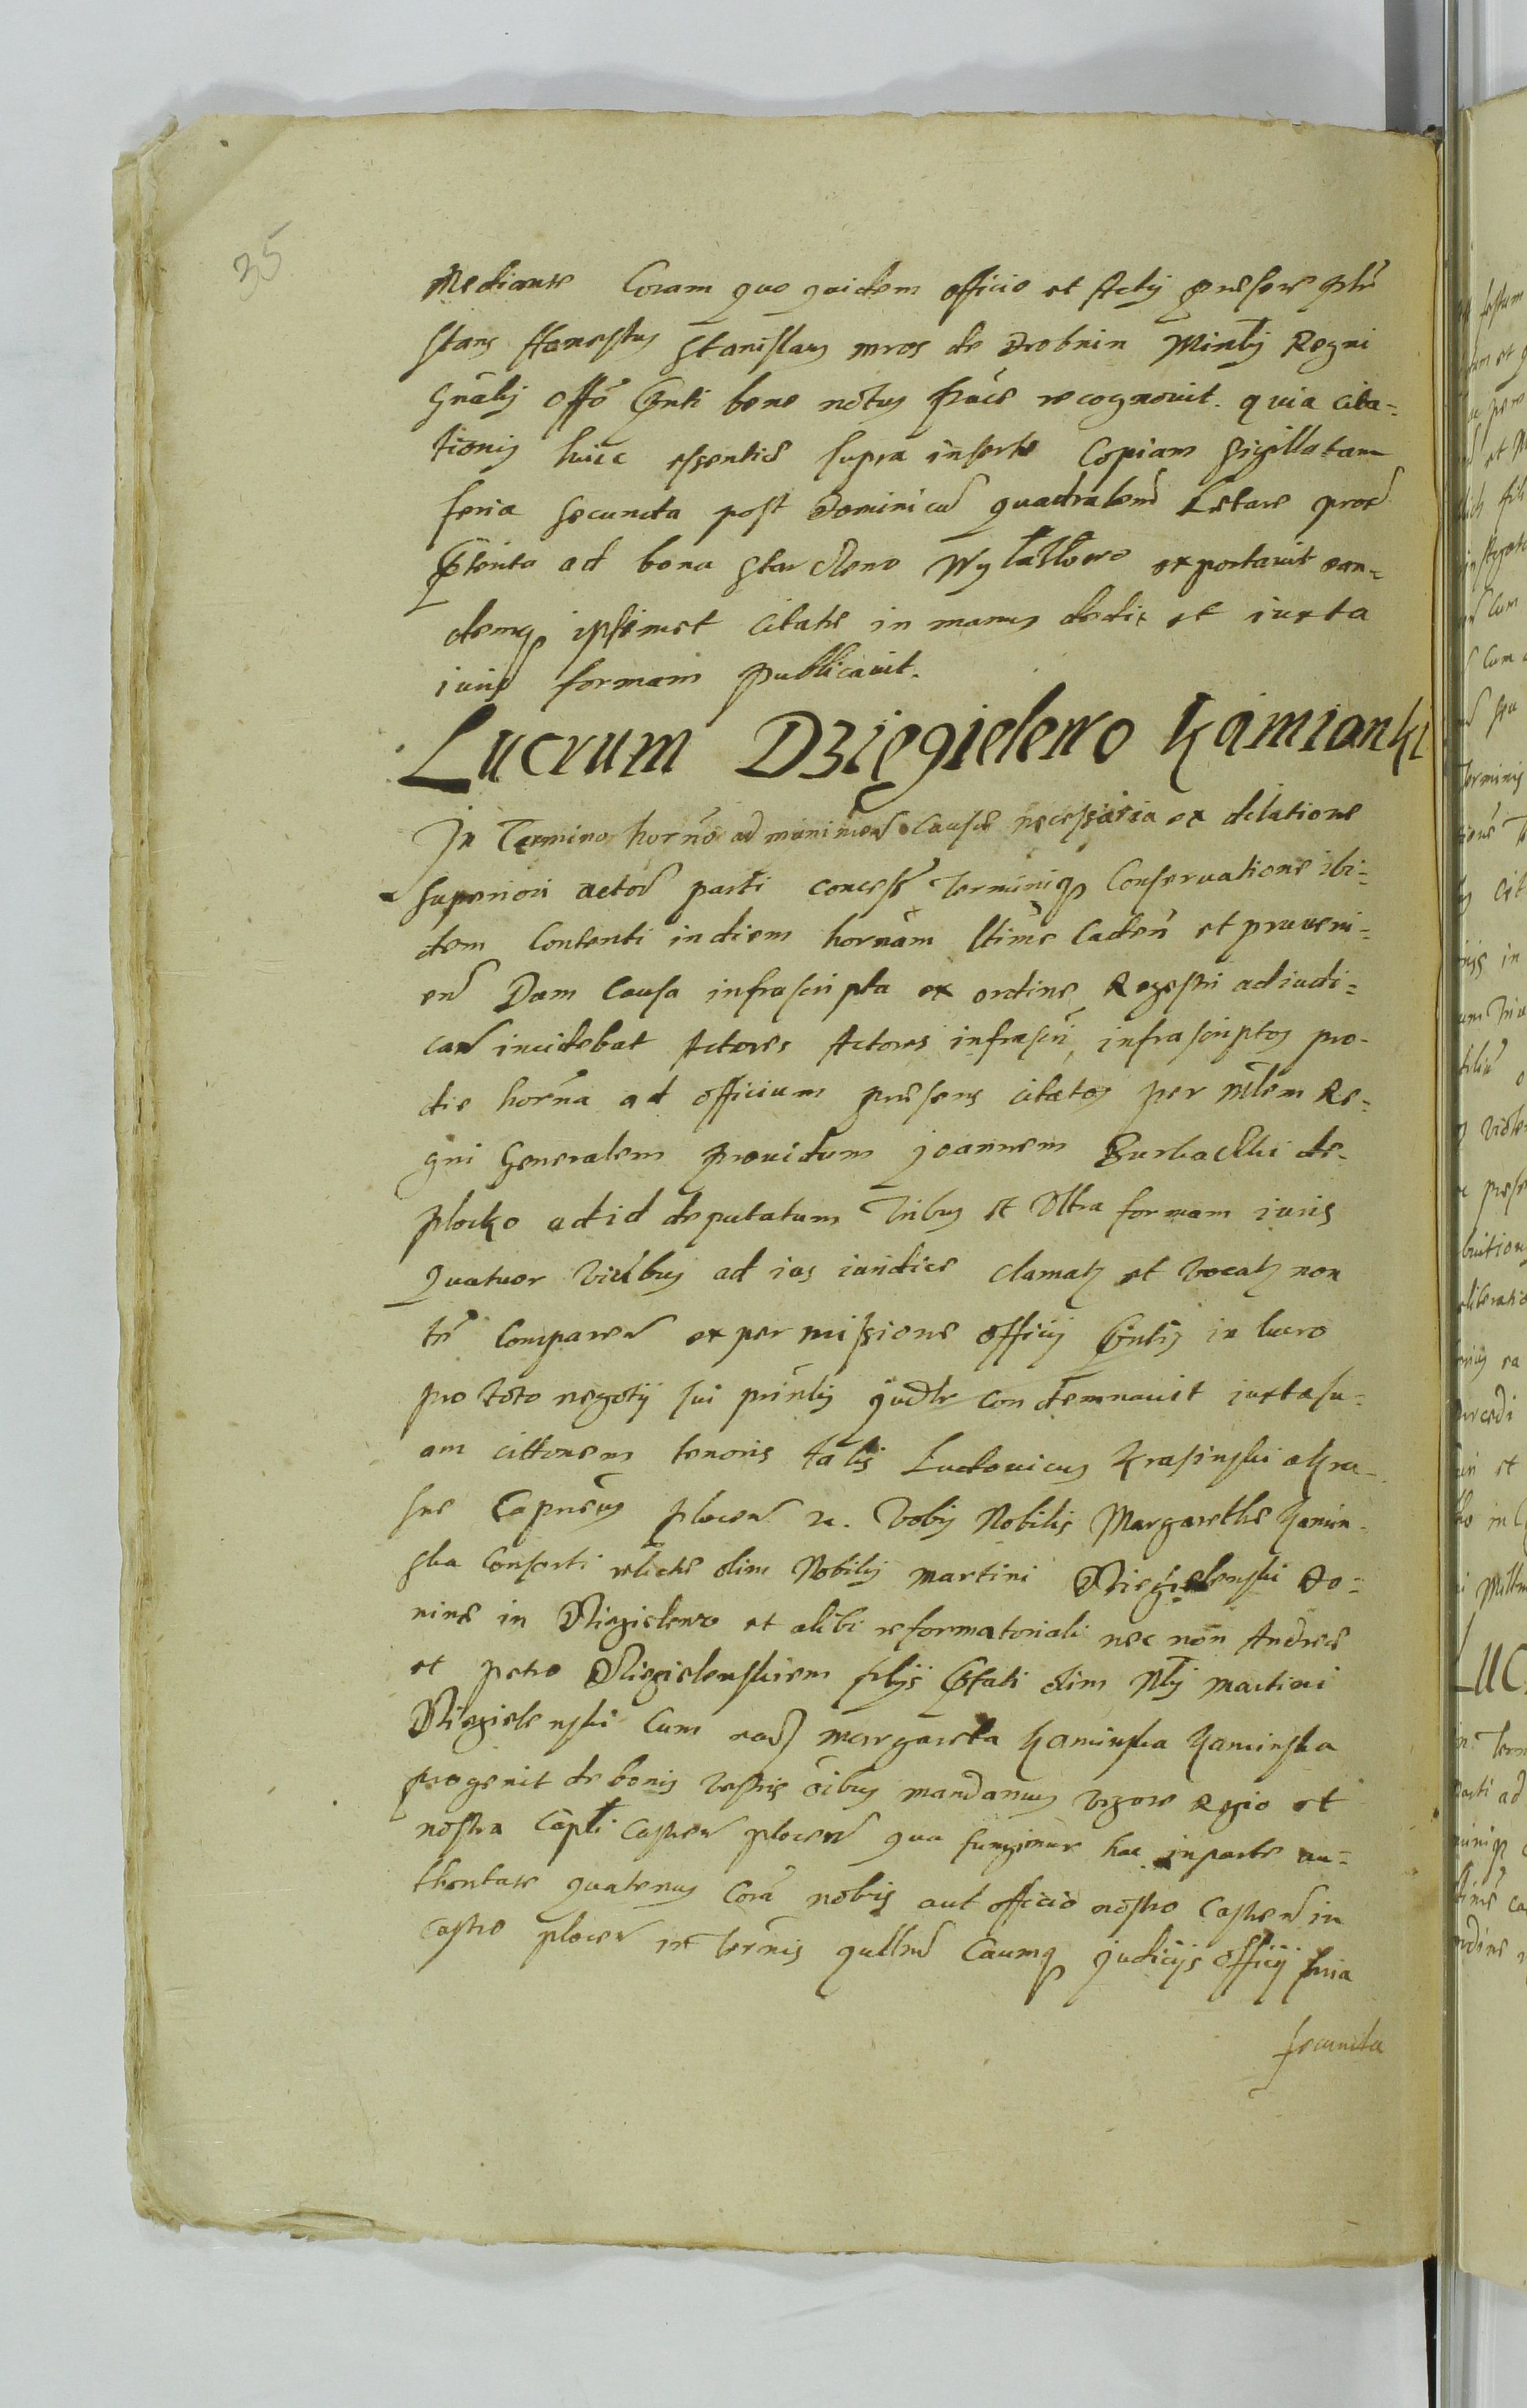 35
Mediante Coram quo quidem officio et Actis præsens
stans Honestus Stanislaus mros de Drobnin Minlis Regni
Gnālis offō bene notus recognouit. quia cita=
tionis huic essentiæ supra insertæ Copiam Sigillatam
feria secunda post Dominicā quadralem Letare prox
ad bona exportauit ean=
demq ipsimet Citatæ in manus dedit et iuxta
iuris formam publicauit.
Lucrum Dzięgielewo Kamianki
In Termino horno ad munimen Causæ necessaria ex dilatione
superiori actor parti concess Terminiq Conseruatione ibi=
dem Contenti in diem hornam Caden et proueni=
en Dum Causa infrascripta ex ordine Regestri adiudi=
can incidebat Actores Actores infrascri infrascriptos pro
die horna ad officium præsens citatos per mlem Re=
gni Generalem prouidum Joannem de
plocko ad id deputatum Tribus et Vltra formam iuris
Quatuor Vicibus ad ius iuridice clamat et vocat non
tn Comparen ex permissione officij in lucro
pro toto negotij sui prinlis condemnauit iuxta su=
am cittonem tenoris talis Ludouicus Krasinski a Kra=
sne Capneus plocen etc. Vobis Nobilis Margarethæ Kamin=
ska Consorti relictæ olim Nobilis Martini Dziegielenski Do=
ninæ in Dziegielewo et alibi reformatoriali nec non Andreæ
et petro Dziegielenskiem filijs olim Nlis Martini
Dziegielenski Cum ead Margareta Kaminska Kaminska
progenit de bonis vestris oibus mandamus vigore Regio et
nostra Capti Castren plocen qua fungimur hac in parte au=
thoritate quatenus Corā nobis aut officio nostro Castren in
Castro plocen in Ternis Caumq judicijs officij feria
secunda